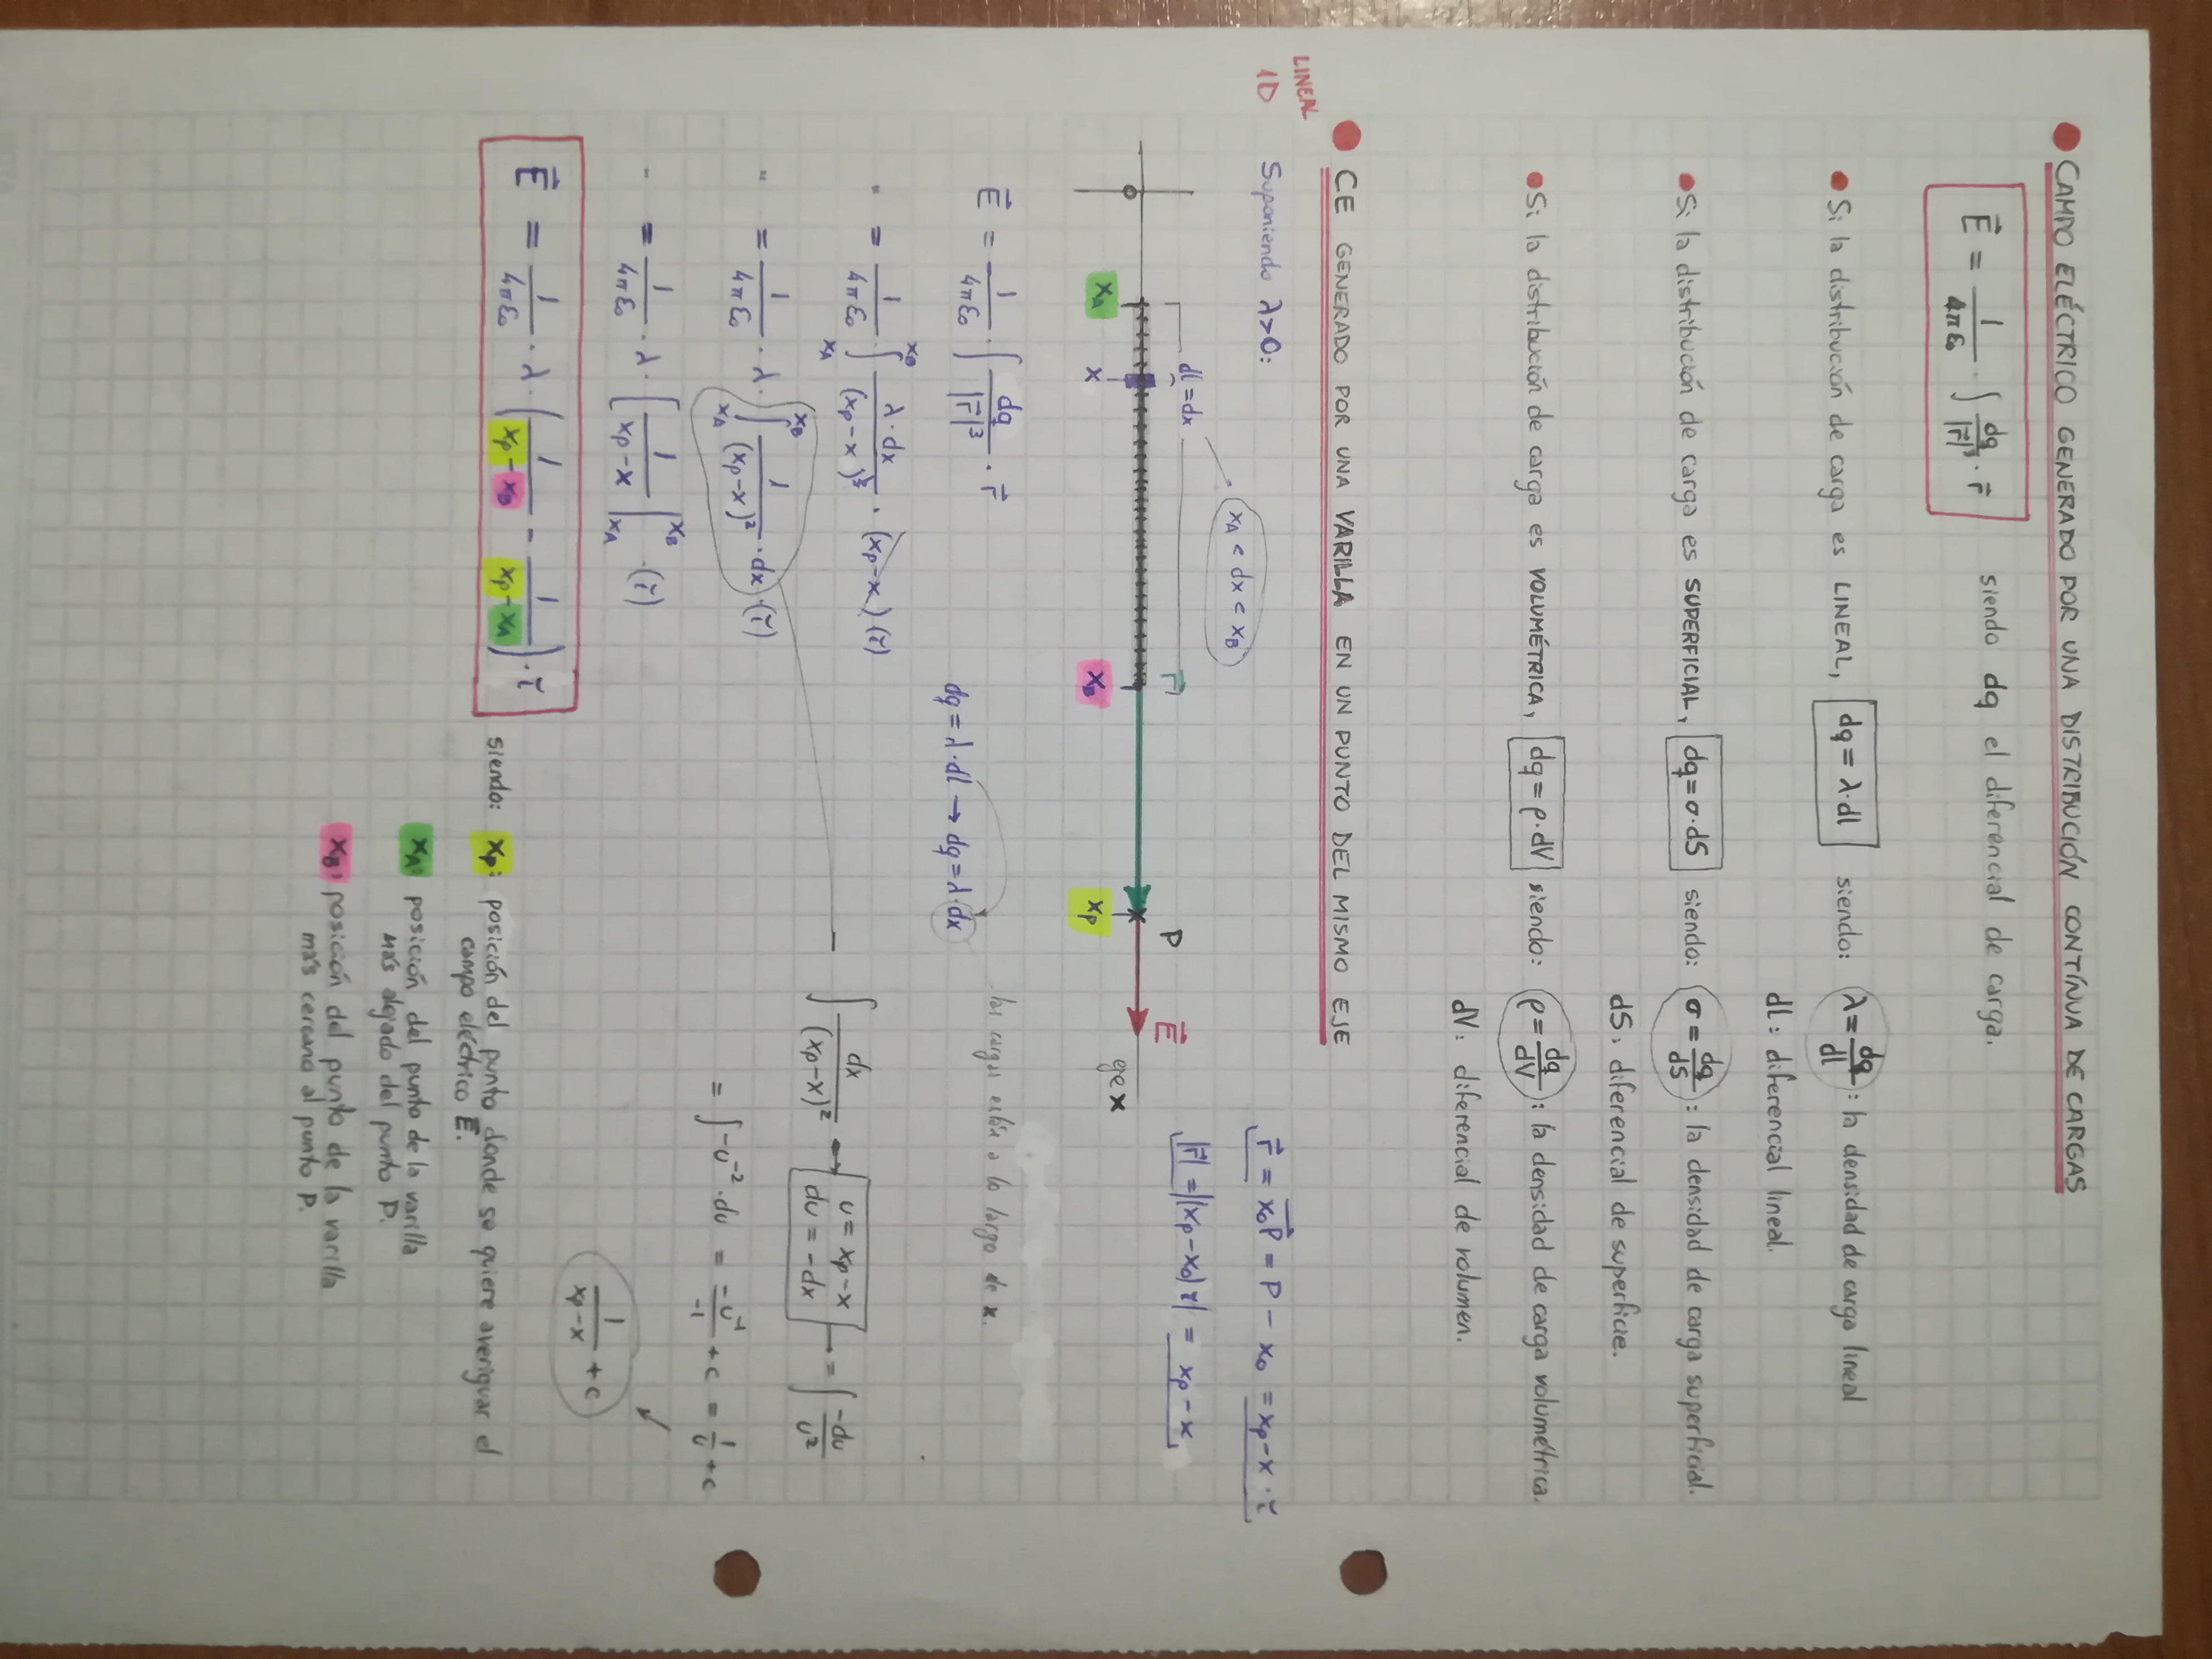 CAMPO ELÉCTRICO GENERADO POR UNA DISTRIBUCIÓN CONTÍNUA DE CARGAS
E⃗ = 1/(4πε₀) · ∫ dq/|r⃗|³ · r⃗   siendo dq el diferencial de carga.
Si la distribución de carga es LINEAL, dq = λ·dl siendo: λ = dq/dl : la densidad de carga lineal
dl: diferencial lineal.
Si la distribución de carga es SUPERFICIAL, dq = σ·dS siendo: σ = dq/dS : la densidad de carga superficial.
dS: diferencial de superficie.
Si la distribución de carga es VOLUMÉTRICA, dq = ρ·dV siendo: ρ = dq/dV : la densidad de carga volumétrica.
dV: diferencial de volumen.
CE GENERADO POR UNA VARILLA EN UN PUNTO DEL MISMO EJE
LINEAL
1D
Suponiendo λ>0:
r⃗ = x₀P⃗ = P − x₀ = xP−x · ı̆
xA < dx < xB
|r⃗| = |(xP−x₀) ı̆| = xP−x
dl = dx
r⃗ P E⃗
0 xA x xB xP eje x
E⃗ = 1/(4πε₀) · ∫ dq/|r⃗|³ · r⃗
dq = λ·dl → dq = λ·dx
las cargas están a lo largo de x.
" = 1/(4πε₀) ∫_xA^xB λ·dx/(xP−x)³ · (xP−x) (ı̆)
∫ dx/(xP−x)² → u = xP−x
du = −dx → = ∫ −du/u²
" = 1/(4πε₀) · λ · ∫_xA^xB 1/(xP−x)² · dx · (ı̆)
= ∫ −u⁻² · du = −u⁻¹/−1 + c = 1/u + c
" = 1/(4πε₀) · λ · [ 1/(xP−x) |_xA^xB · (ı̆)
1/(xP−x) + c
E⃗ = 1/(4πε₀) · λ · ( 1/(xP−xB) − 1/(xP−xA) ) · ı̆
siendo: xP: posición del punto donde se quiere averiguar el
campo eléctrico E⃗.
xA: posición del punto de la varilla
más alejado del punto P.
xB: posición del punto de la varilla
más cercano al punto P.